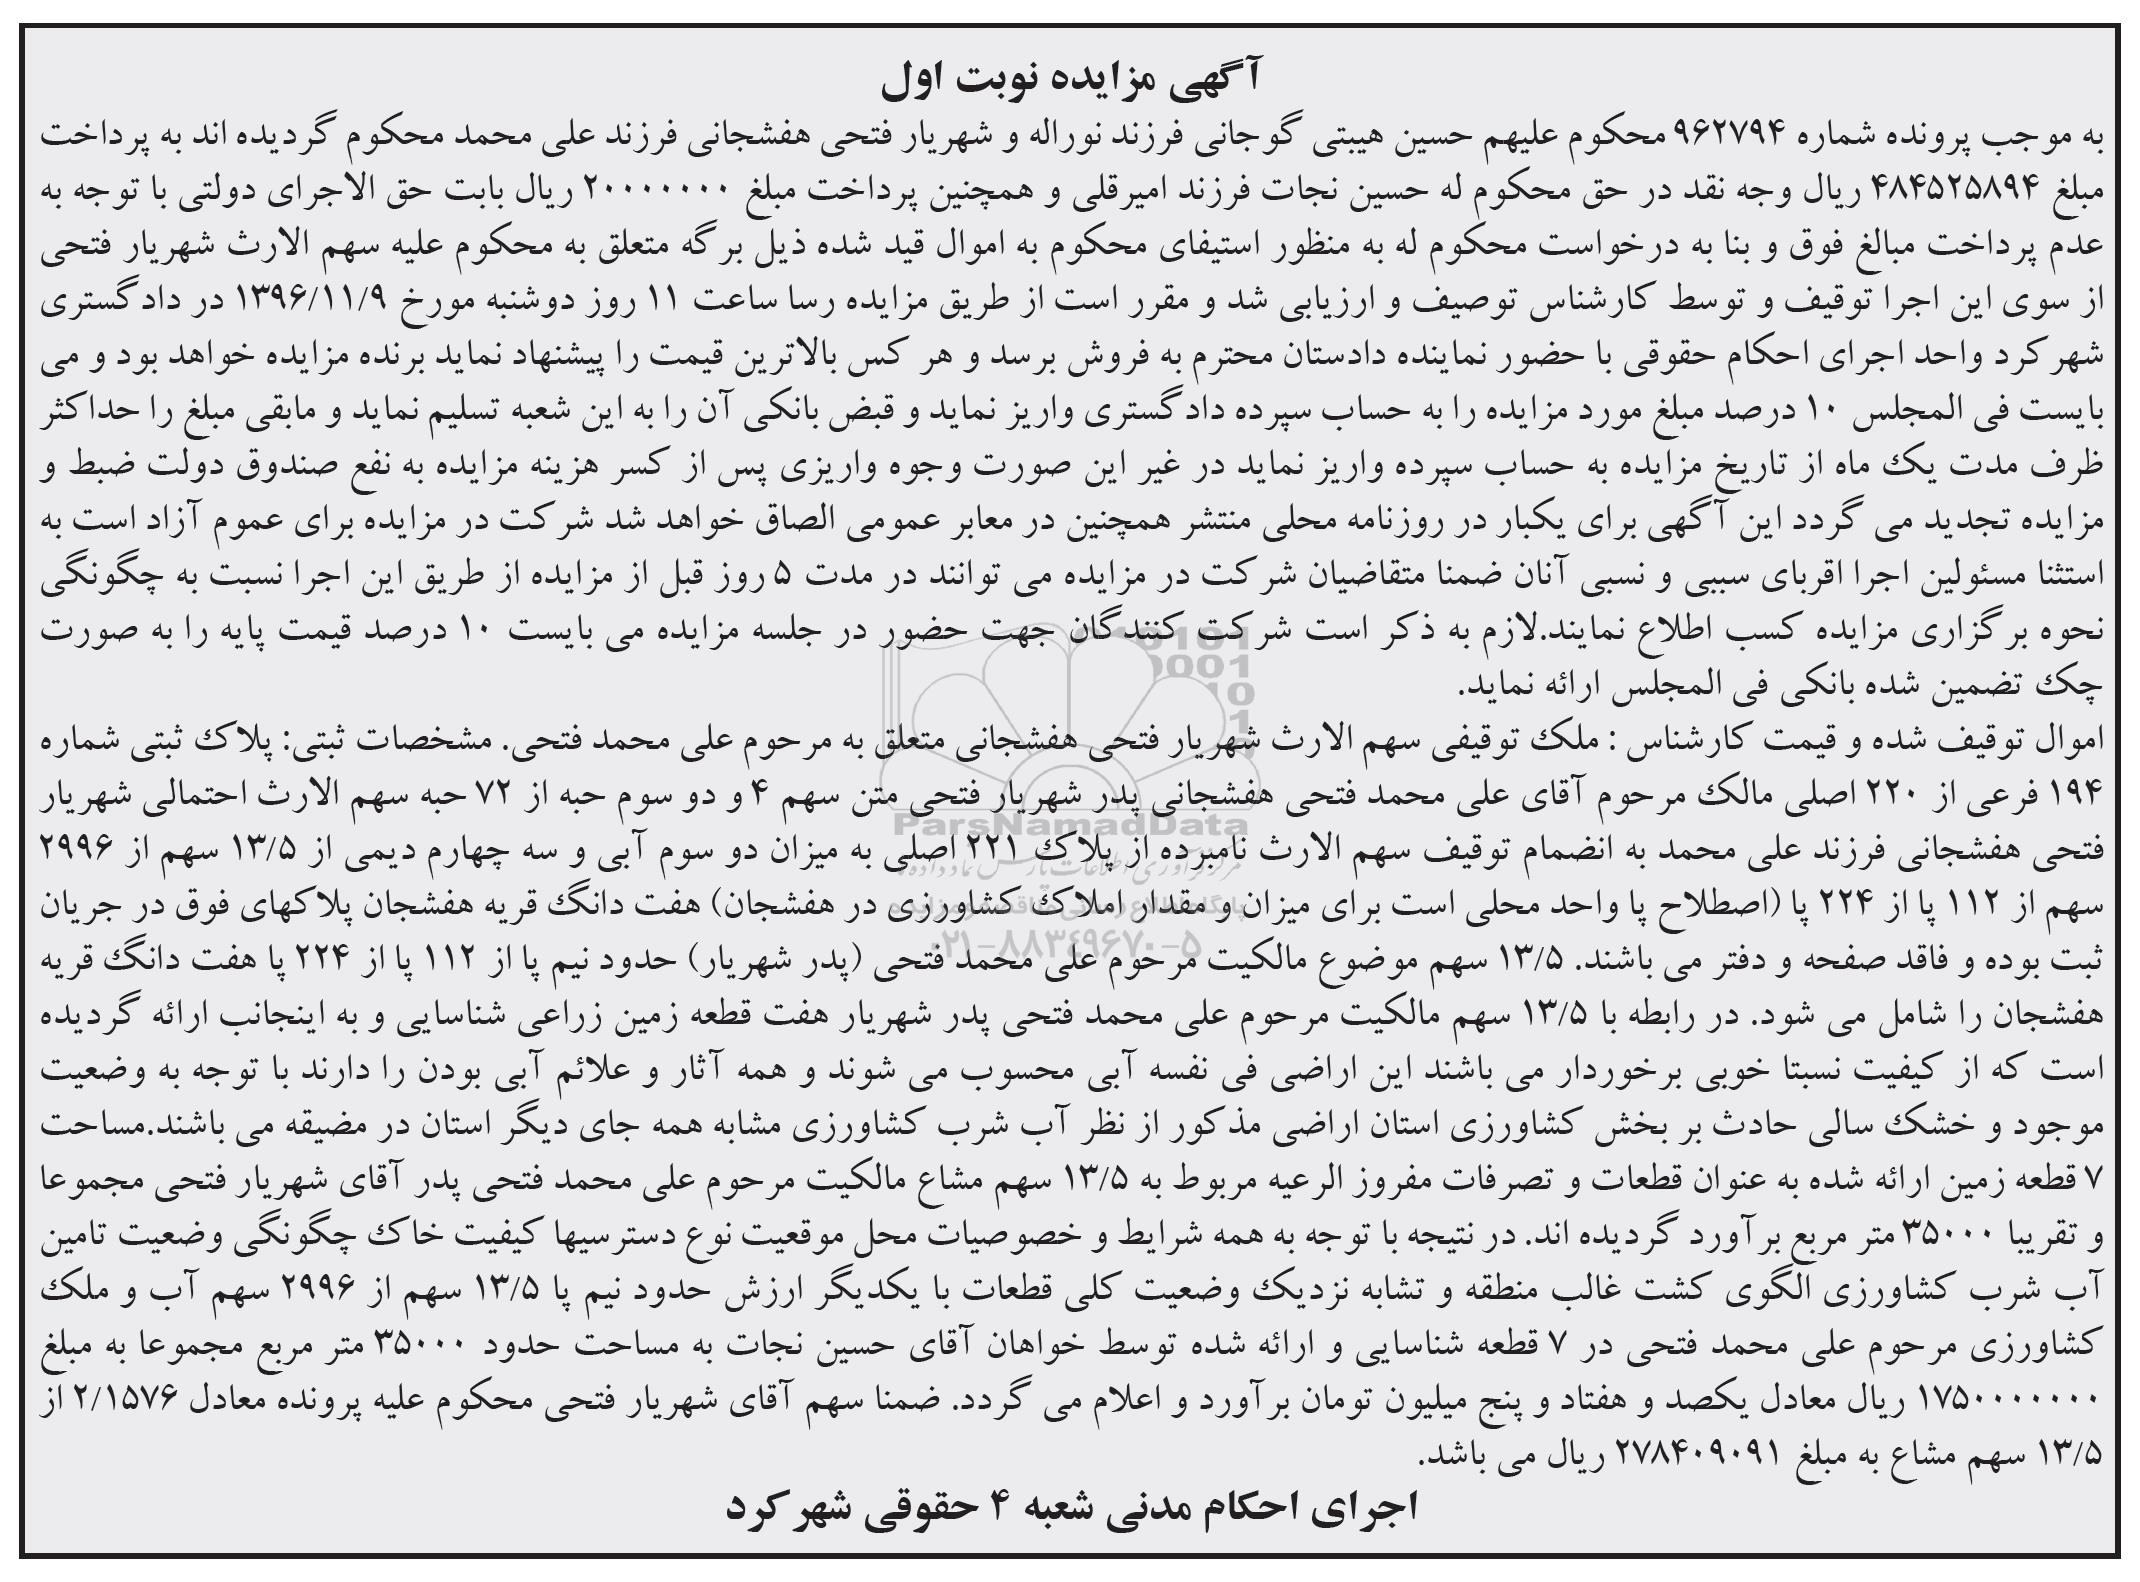 آگهی مزایده نوبت اول
به موجب پرونده شماره ۹۶۲۷۹۴ محکوم علیهم حسین هیبتی گوجانی فرزند نوراله و شهریار فتحی هفشجانی فرزند علی محمد محکوم گردیده اند به پرداخت
مبلغ ۴۸۴۵۲۵۸۹۴ ریال وجه نقد در حق محکوم له حسین نجات فرزند امیرقلی و همچنین پرداخت مبلغ ۲۰۰۰۰۰۰۰ ریال بابت حق الاجرای دولتی با توجه به
عدم پرداخت مبالغ فوق و بنا به درخواست محکوم له به منظور استیفای محکوم به اموال قید شده ذیل برگه متعلق به محکوم علیه سهم الارث شهریار فتحی
از سوی این اجرا توقیف و توسط کارشناس توصیف و ارزیابی شد و مقرر است از طریق مزایده رسا ساعت ۱۱ روز دوشنبه مورخ ۱۳۹۶/۱۱/۹ در دادگستری
شهرکرد واحد اجرای احکام حقوقی با حضور نماینده دادستان محترم به فروش برسد و هر کس بالاترین قیمت را پیشنهاد نماید برنده مزایده خواهد بود و می
بایست فی المجلس ۱۰ درصد مبلغ مورد مزایده را به حساب سپرده دادگستری واریز نماید و قبض بانکی آن را به این شعبه تسلیم نماید و مابقی مبلغ را حداکثر
ظرف مدت یک ماه از تاریخ مزایده به حساب سپرده واریز نماید در غیر این صورت وجوه واریزی پس از کسر هزینه مزایده به نفع صندوق دولت ضبط و
مزایده تجدید می گردد این آگهی برای یکبار در روزنامه محلی منتشر همچنین در معابر عمومی الصاق خواهد شد شرکت در مزایده برای عموم آزاد است به
استثنا مسئولین اجرا اقربای سببی و نسبی آنان ضمنا متقاضیان شرکت در مزایده می توانند در مدت ۵ روز قبل از مزایده از طریق این اجرا نسبت به چگونگی
نحوه برگزاری مزایده کسب اطلاع نمایند.لازم به ذکر است شرکت کنندگان جهت حضور در جلسه مزایده می بایست ۱۰ درصد قیمت پایه را به صورت
چک تضمین شده بانکی فی المجلس ارائه نماید.
اموال توقیف شده و قیمت کارشناس : ملک توقیفی سهم الارث شهریار فتحی هفشجانی متعلق به مرحوم علی محمد فتحی. مشخصات ثبتی: پلاک ثبتی شماره
۱۹۴ فرعی از ۲۲۰ اصلی مالک مرحوم آقای علی محمد فتحی هفشجانی پدر شهریار فتحی متن سهم ۴ و دو سوم حبه از ۷۲ حبه سهم الارث احتمالی شهریار
ParsNamadData
فتحی هفشجانی فرزند علی محمد به انضمام توقیف سهم الارث نامبرده از پلاک ۲۲۱ اصلی به میزان دو سوم آبی و سه چهارم دیمی از ۱۳/۵ سهم از ۲۹۹۶
سهم از ۱۱۲ پا از ۲۲۴ پا (اصطلاح پا واحد محلی است برای میزان و مقدار املاک کشاورزی در هفشجان) هفت دانگ قریه هفشجان پلاکهای فوق در جریان
۰۲۱-۸۸۳۴۹۶۷۰-۵
ثبت بوده و فاقد صفحه و دفتر می باشند. ۱۳/۵ سهم موضوع مالکیت مرحوم علی محمد فتحی (پدر شهریار) حدود نیم پا از ۱۱۲ پا از ۲۲۴ پا هفت دانگ قریه
هفشجان را شامل می شود. در رابطه با ۱۳/۵ سهم مالکیت مرحوم علی محمد فتحی پدر شهریار هفت قطعه زمین زراعی شناسایی و به اینجانب ارائه گردیده
است که از کیفیت نسبتا خوبی برخوردار می باشند این اراضی فی نفسه آبی محسوب می شوند و همه آثار و علائم آبی بودن را دارند با توجه به وضعیت
موجود و خشک سالی حادث بر بخش کشاورزی استان اراضی مذکور از نظر آب شرب کشاورزی مشابه همه جای دیگر استان در مضیقه می باشند.مساحت
۷ قطعه زمین ارائه شده به عنوان قطعات و تصرفات مفروز الرعیه مربوط به ۱۳/۵ سهم مشاع مالکیت مرحوم علی محمد فتحی پدر آقای شهریار فتحی مجموعا
و تقریبا ۳۵۰۰۰ متر مربع برآورد گردیده اند. در نتیجه با توجه به همه شرایط و خصوصیات محل موقعیت نوع دسترسیها کیفیت خاک چگونگی وضعیت تامین
آب شرب کشاورزی الگوی کشت غالب منطقه و تشابه نزدیک وضعیت کلی قطعات با یکدیگر ارزش حدود نیم پا ۱۳/۵ سهم از ۲۹۹۶ سهم آب و ملک
کشاورزی مرحوم علی محمد فتحی در ۷ قطعه شناسایی و ارائه شده توسط خواهان آقای حسین نجات به مساحت حدود ۳۵۰۰۰ متر مربع مجموعا به مبلغ
۱۷۵۰۰۰۰۰۰۰ ریال معادل یکصد و هفتاد و پنج میلیون تومان برآورد و اعلام می گردد. ضمنا سهم آقای شهریار فتحی محکوم علیه پرونده معادل ۲/۱۵۷۶ از
۱۳/۵ سهم مشاع به مبلغ ۲۷۸۴۰۹۰۹۱ ریال می باشد.
اجرای احکام مدنی شعبه ۴ حقوقی شهرکرد